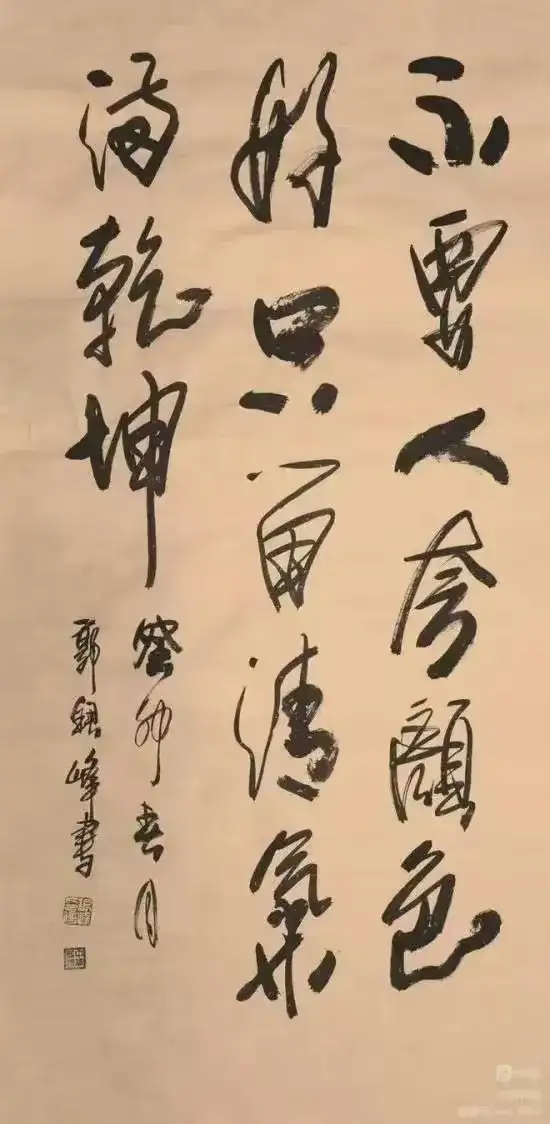 不要人夸颜色
好只留清氣
滿乾坤
癸卯春月
郭興峰書